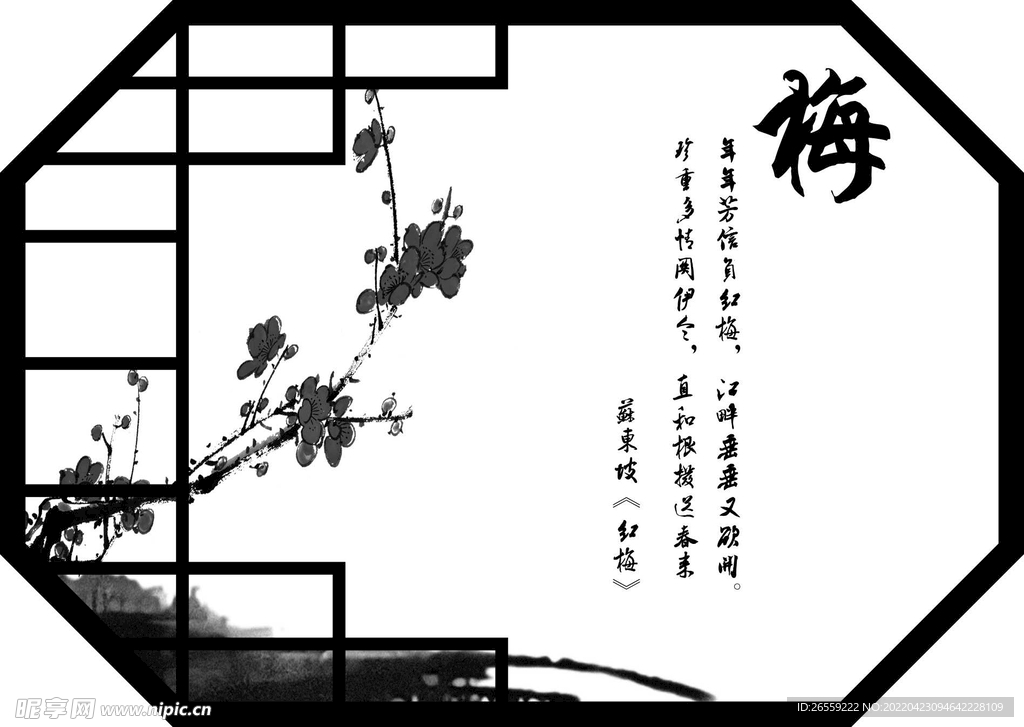 梅
年年芳信負红梅，江畔垂垂又欲開。
珍重多情関伊令，直和根撥送春来
蘇東坡《红梅》
昵享网 www.nipic.cn
ID:26559222 NO:20220423094642228109